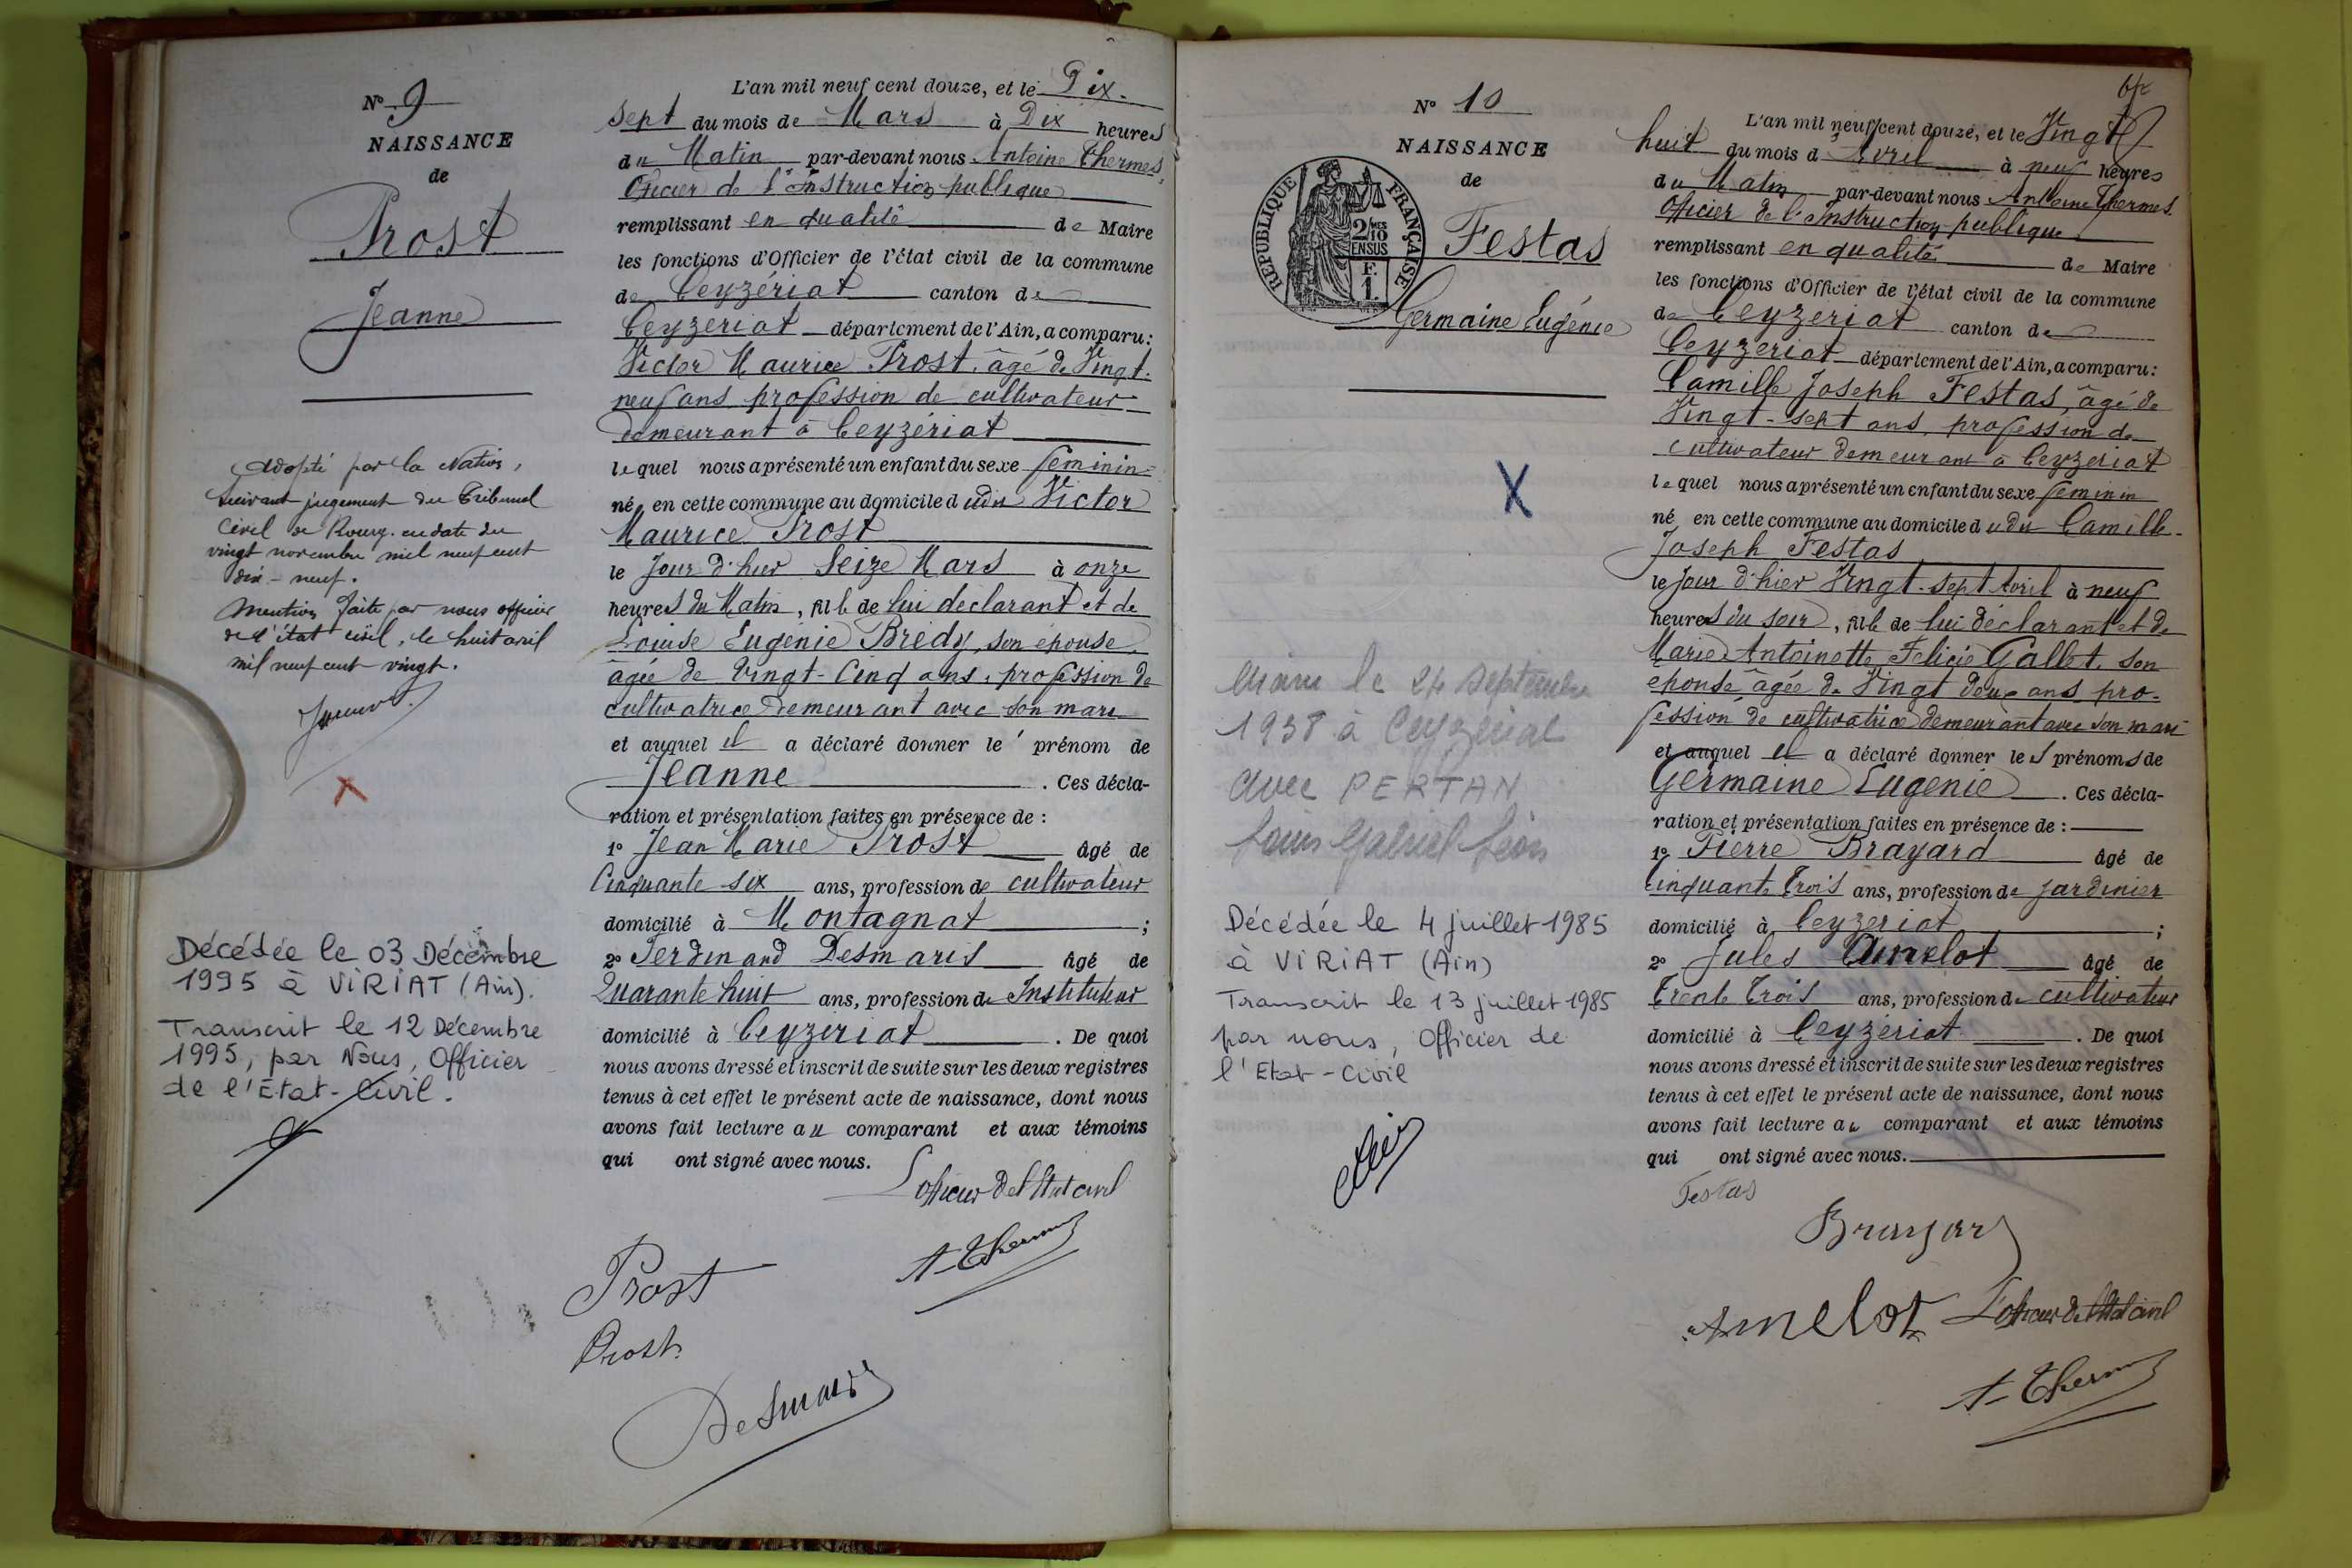 N° 9
NAISSANCE
de
Prost
Jeanne
Adopté par la Nation,
suivant jugement du Tribunal
Civil de Bourg. en date du
vingt novembre mil neuf cent
dix-neuf.
Mention faite par nous officier
de l'état civil, le huit avril
mil neuf cent vingt.
X
Décédée le 03 Décembre
1995 à VIRIAT (Ain).
Transcrit le 12 Décembre
1995, par Nous, Officier
de l'Etat-Civil.
L'an mil neuf cent douze, et le Dix-
sept du mois de Mars à Dix heures
du Matin par-devant nous Antoine Thermes,
Officier de l'Instruction publique
remplissant en qualité de Maire
les fonctions d'Officier de l'état civil de la commune
de Ceyzériat canton de
Ceyzeriat département de l'Ain, a comparu:
Victor Maurice Prost, âgé de Vingt-
neuf ans profession de cultivateur
demeurant à Ceyzériat
lequel nous a présenté un enfant du sexe féminin
né, en cette commune au domicile dudit Victor
Maurice Prost
le Jour d'hier Seize Mars à onze
heures du Matin, fille de lui déclarant et de
Louise Eugénie Brédy, son épouse
âgée de Vingt-Cinq ans, profession de
cultivatrice demeurant avec son mari
et auquel il a déclaré donner le prénom de
Jeanne. Ces décla-
ration et présentation faites en présence de :
1° Jean Marie Prost âgé de
Cinquante six ans, profession de cultivateur
domicilié à Montagnat ;
2° Ferdinand Desmaris âgé de
Quarante huit ans, profession de Instituteur
domicilié à Ceyzériat. De quoi
nous avons dressé et inscrit de suite sur les deux registres
tenus à cet effet le présent acte de naissance, dont nous
avons fait lecture au comparant et aux témoins
qui ont signé avec nous.
L'officier de l'Etat civil
A. Thermes
Prost
Prost
Desmaris
N° 10
NAISSANCE
de
RÉPUBLIQUE FRANÇAISE
2/10
EN SUS
F.
1.
Festas
Germaine Eugénie
X
Mariée le 24 Septembre
1938 à Ceyzériat
avec PERTAN
Louis Gabriel Léon
Décédée le 4 juillet 1985
à VIRIAT (Ain)
Transcrit le 13 juillet 1985
par nous, Officier de
l'Etat-Civil
L'an mil neuf cent douze, et le Vingt
huit du mois d'Avril à neuf heures
du Matin par-devant nous Antoine Thermes
Officier de l'Instruction publique
remplissant en qualité de Maire
les fonctions d'Officier de l'état civil de la commune
de Ceyzeriat canton de
Ceyzeriat département de l'Ain, a comparu:
Camille Joseph Festas, âgé de
Vingt-sept ans, profession de
cultivateur demeurant à Ceyzeriat
lequel nous a présenté un enfant du sexe féminin
né en cette commune au domicile dudit Camille
Joseph Festas
le Jour d'hier Vingt-sept Avril à neuf
heures du soir, fille de lui déclarant et de
Marie Antoinette Felicie Gallet, son
épouse, âgée de Vingt deux ans pro-
fession de cultivatrice demeurant avec son mari
et auquel il a déclaré donner les prénoms de
Germaine Eugénie. Ces décla-
ration et présentation faites en présence de :
1° Pierre Brayard âgé de
Cinquante Trois ans, profession de jardinier
domicilié à Ceyzeriat ;
2° Jules Amelot âgé de
Trente Trois ans, profession de cultivateur
domicilié à Ceyzériat. De quoi
nous avons dressé et inscrit de suite sur les deux registres
tenus à cet effet le présent acte de naissance, dont nous
avons fait lecture au comparant et aux témoins
qui ont signé avec nous.
Festas
Brayard
Amelot
L'officier de l'Etat civil
A. Thermes